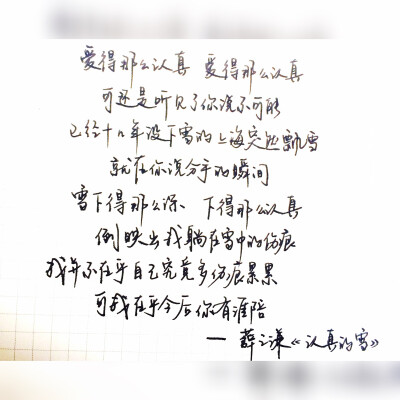 爱得那么认真 爱得那么认真
可还是听见了你说不可能
已经十几年没下雪的上海突然飘雪
就在你说分手的瞬间
雪下得那么深、下得那么认真
倒映出我躺在雪中的伤痕
我并不在乎自己究竟多伤痕累累
可我在乎今后你有谁陪
—薛之谦《认真的雪》